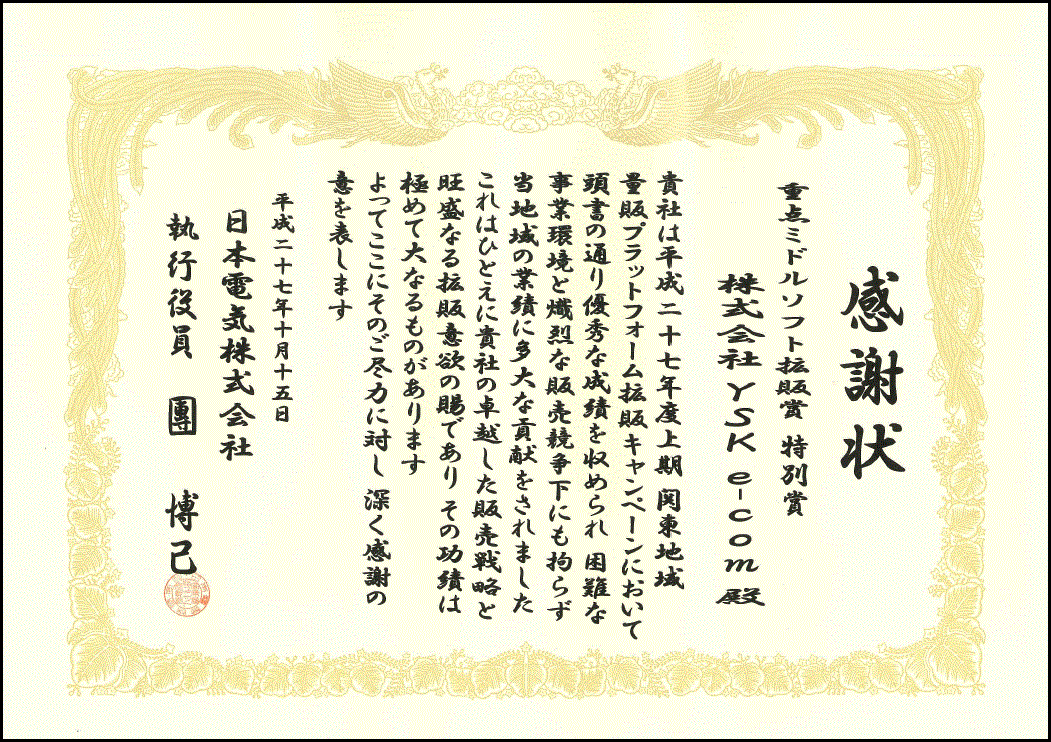 感謝状
重点ミドルソフト拡販賞 特別賞
株式会社 YSK e-com 殿
貴社は平成二十七年度上期 関東地域
量販プラットフォーム拡販キャンペーンにおいて
頭書の通り優秀な成績を収められ 困難な
事業環境と熾烈な販売競争下にも拘らず
当地域の業績に多大な貢献をされました
これはひとえに貴社の卓越した販売戦略と
旺盛なる拡販意欲の賜であり その功績は
極めて大なるものがあります
よってここにそのご尽力に対し 深く感謝の
意を表します
平成二十七年十月十五日
日本電気株式会社
執行役員 團 博己